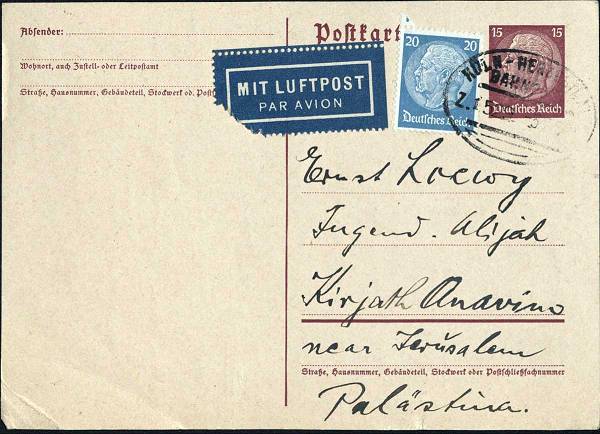 Absender:
Wohnort, auch Zustell- oder Leitpostamt
Straße, Hausnummer, Gebäudeteil, Stockwerk od. Postf
Postkart
MIT LUFTPOST
PAR AVION
20 20
Deutsches Reich
15 15
Deutsches Reich
KÖLN-
BAHN
Z.15
Ernst Loewy
Jugend. Alijah
Kirjath Anavim
near Jerusalem
Straße, Hausnummer, Gebäudeteil, Stockwerk oder Postschließfachnummer
Palästina.